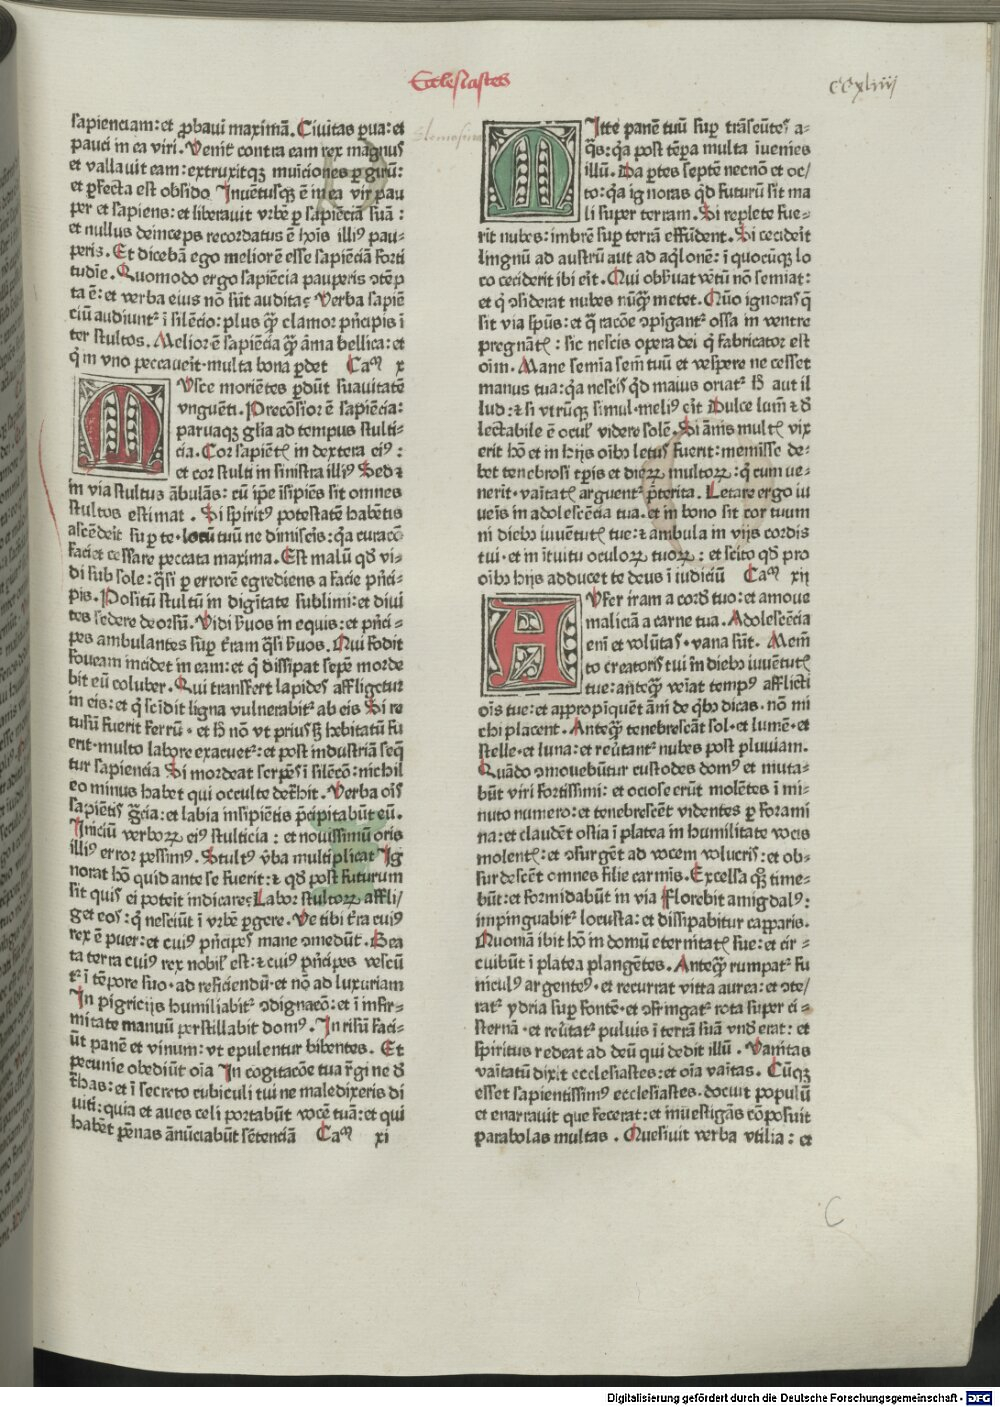 Ecclesiastes
ccxliiij
sapienciam: et ꝓbaui maximā. Ciuitas ꝑua: et
pauci in ea viri. Venit contra eam rex magnus
et vallauit eam: extruxitqꝫ municiones ꝑ girū:
et ꝑfecta est obsidio Inuētusqꝫ ē in ea vir pau
per et sapiens: et liberauit vrbē ꝑ sapiēciā suā:
et nullus deinceps recordatus ē hoīs illiꝰ pau-
peris. Et dicebā ego meliorē esse sapiēciā forti
tudīe. Quomodo ergo sapiēcia pauperis ↄtēp
ta ē: et verba eius nō sūt audita; Verba sapiē
ciū audiunt᷑ ī silēcio: plus qᷓꝫ clamor pͥncipis ī
ter stultos. Melior ē sapiēcia qᷓꝫ āma bellica: et
qͥ in vno peccauerit· multa bona ꝑdet Caᵐ x
MVsce moriētes ꝑdūt suauitatē
vnguēti. Preciosior ē sapiēcia:
paruaqꝫ gl̄ia ad tempus stulti-
cia. Cor sapiētꝭ in dextera eiꝰ:
et cor stulti in sinistra illiꝰ Sed ⁊
in via stultus ābulās: cū ip̄e īsipiēs sit omnes
stultos estimat. Si spiritꝰ potestatē habētis
ascēderit suꝑ te· locū tuū ne dimiseis: qͥa curacō
faciet cessare peccata maxima. Est malū qd̓ vi-
di sub sole: qͣsi ꝑ errorē egrediens a facie pͥnci-
pis. Positū stultū in dignitate sublimi: et diui
tes sedere deorsū. Vidi ẜuos in equis: et pͥnci-
pes ambulantes suꝑ t̓ram qͣsi ẜuos. Qui fodit
foueam incidet in eam: et qͥ dissipat sepē morde
bit eū coluber. Qui transfert lapides affligetur
in eis: et qͥ scīdit ligna vulnerabit᷑ ab eis Si re
tusū fuerit ferrū· et h̓ nō vt priusꝫ hebitatū fu
erit· multo labore exacuet᷑: et post industriā seqͣ
tur sapiencia Si mordeat serpēs ī silēcō: nichil
eo minus habet qui occulte det̓hit. Verba oīs
sapiētis gͣcia: et labia insipiētis pͣcipitabūt eū.
Iniciū verboꝝ eiꝰ stulticia: et nouissimū oris
illiꝰ error pessimꝰ. Stultꝰ v̓ba multiplicat Ig
norat hō quid ante se fuerit: ⁊ qd̓ post futurum
sit quis ei poteit indicare; Labor stultoꝝ affli/
get eos: qͥ nesciūt ī vrbē ꝑgere. Ve tibi t̓ra cuiꝰ
rex ē puer: et cuiꝰ pͥncipes mane ↄmedūt. Bea
ta terra cuiꝰ rex nobilꝭ est: ⁊ cuiꝰ pͥncipes vescū
t᷑ ī tēpore suo· ad reficiendū· et nō ad luxuriam
In pigricijs humiliabit᷑ ↄdignacō: et ī infir-
mitate manuū perstillabit domꝰ. In risū faci-
ūt panē et vinum: vt epulentur bibentes. Et
pecunie obediūt oīa In cogitacōe tua r̓gi ne d̓
t̓has: et ī secreto cubiculi tui ne maledixeris di
uiti: quia et aues celi portabūt vocē tuā: et qui
habēt pēnas ānūciabūt sētenciā Caᵐ xi
MItte panē tuū suꝑ trāseūtes a-
qͣs: qͥa post tēp̄a multa iuenies
illū. Da ꝑtes septē necnō et oc/
to: qͥa ignoras qͥd futurū sit ma
li super terram. Si replete fue-
rit nubes: imbrē suꝑ terrā effūdent. Si cecideīt
lingnū ad austrū aut ad aqͥlonē: ī quocūqꝫ lo
co ceciderit ibi eīt. Qui obẜuat vētū nō semīat:
et qͥ ↄsiderat nubes nūqͣꝫ metet. Quō ignoras q̄
sit via sp̄us: et qͣ racōe ↄpīgant᷑ ossa in ventre
pregnātꝭ: sic nescis opera dei qͥ fabricator est
oīm. Mane semīa semē tuū et vespere ne cesset
manus tua: qͥa nescis qͥd maius oriat᷑ h̓ aut il
lud: ⁊ si vtrūqꝫ simul· meliꝰ eīt Dulce lumē ⁊ d̓
lectabile ē oculꝭ videre solē. Si ānis multꝭ vix
erit hō et in hijs oībꝰ letus fuerit: memisse de-
bet tenebrosi tꝑis et dieꝝ multoꝝ: qͥ cum ve-
nerit· vaītatꝭ arguent᷑ pͣterita. Letare ergo iu
ueīs in adolescēcia tua· et in bono sit cor tuum
in diebꝰ iuuētutꝭ tue: ⁊ ambula in vijs cordis
tui· et in ītuitu oculoꝝ tuoꝝ: et scito qd̓ pro
oībꝰ hijs adducet te deus ī iudiciū Caᵐ xij
AVfer iram a cord̓ tuo: et amoue
maliciā a carne tua. Adolescēcia
enī et volūtas· vana sūt. Mem̄
to creatoris tui in diebꝰ iuuētutꝭ
tue: anteqͣꝫ veīat tempꝰ afflicti
oīs tue: et appropīquēt āni de qͥbꝰ dicas· nō mi
chi placent. Anteqͣꝫ tenebrescāt sol· et lumē· et
stelle· et luna: et reūtant᷑ nubes post pluuiam.
Quādo ↄmouebūtur custodes domꝰ et nuta-
būt viri fortissimi: et ociose erūt molētes ī mi-
nuto numero: et tenebrescēt videntes ꝑ forami
na: et claudēt ostia ī platea in humilitate vocis
molentꝭ: et ↄsurgēt ad vocem volucris: et ob-
surdescēt omnes filie carmīs. Excelsa qͦꝫ time-
būt: et formidabūt in via Florebit amigdalꝰ:
impinguabit᷑ locusta: et dissipabitur capparis.
Quoniā ibit hō in domū eternitatꝭ sue: et cir-
cuibūt ī platea plangētes. Anteqͣꝫ rumpat᷑ fu
niculꝰ argenteꝰ· et recurrat vitta aurea: et ↄte/
rat᷑ ydria suꝑ fontē· et ↄfringat᷑ rota super ci-
sternā· et reūtat᷑ puluis ī terrā suā vnd̓ erat: et
spiritus redeat ad deū qui dedit illū. Vanitas
vaītatū dixit ecclesiastes: et oīa vaītas. Cūqꝫ
esset sapientissimꝰ ecclesiastes· docuit populū
et enarrauit que fecerat: et inuestigās cōposuit
parabolas multas. Quesiuit verba vtilia: et
C
Digitalisierung gefördert durch die Deutsche Forschungsgemeinschaft - DFG